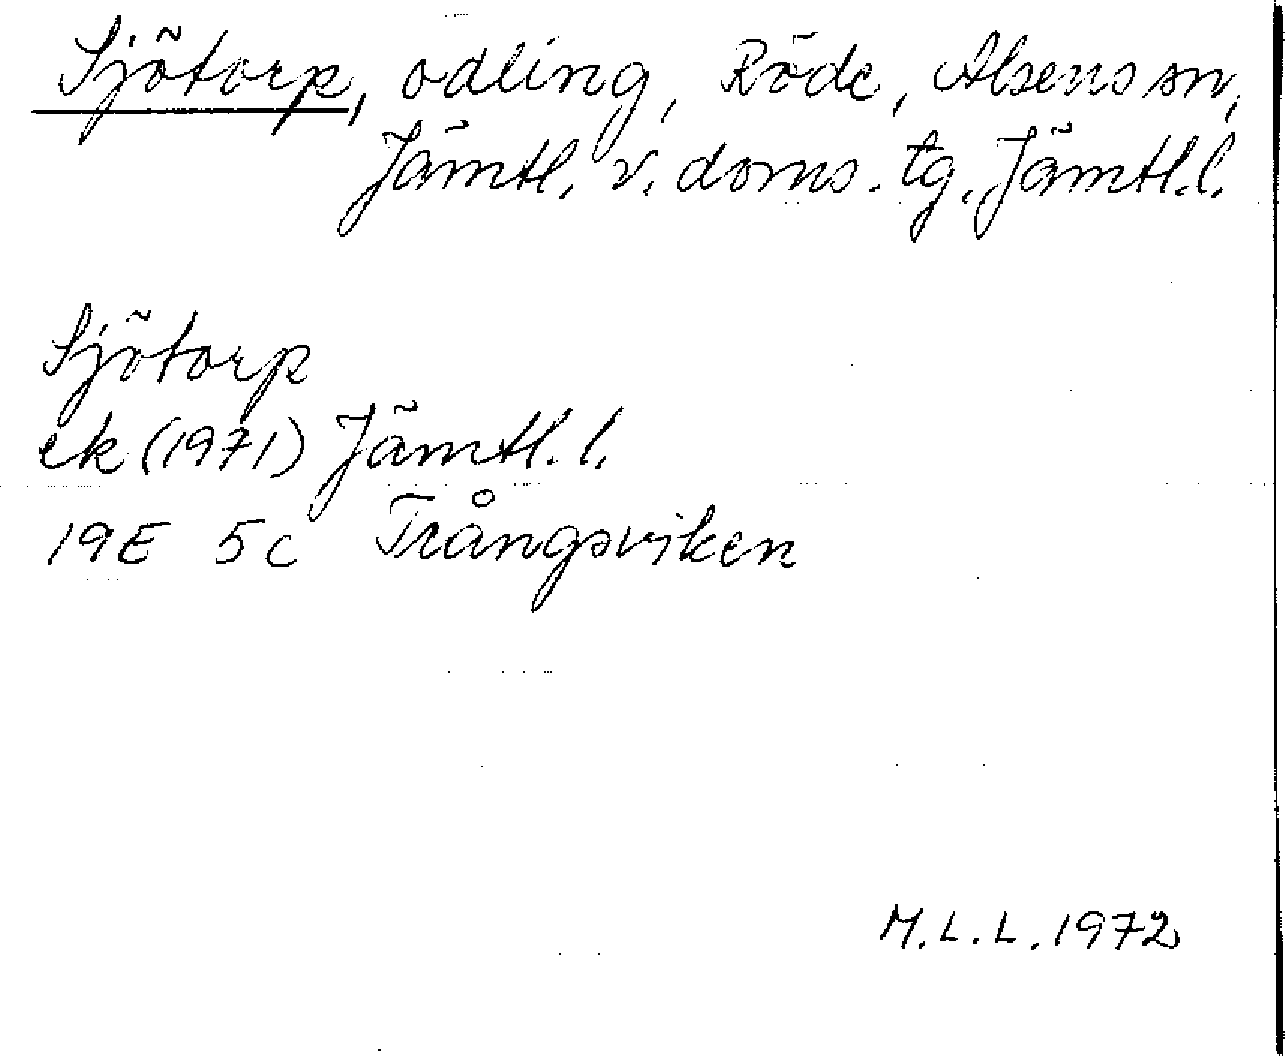 Sjötorp, odling, Röde, Alsens sn,
Jämtl. v. doms. tg. Jämtl. l.
Sjötorp
ek (1971) Jämtl. l.
19E 5c Trångsviken
M.L.L. 1972